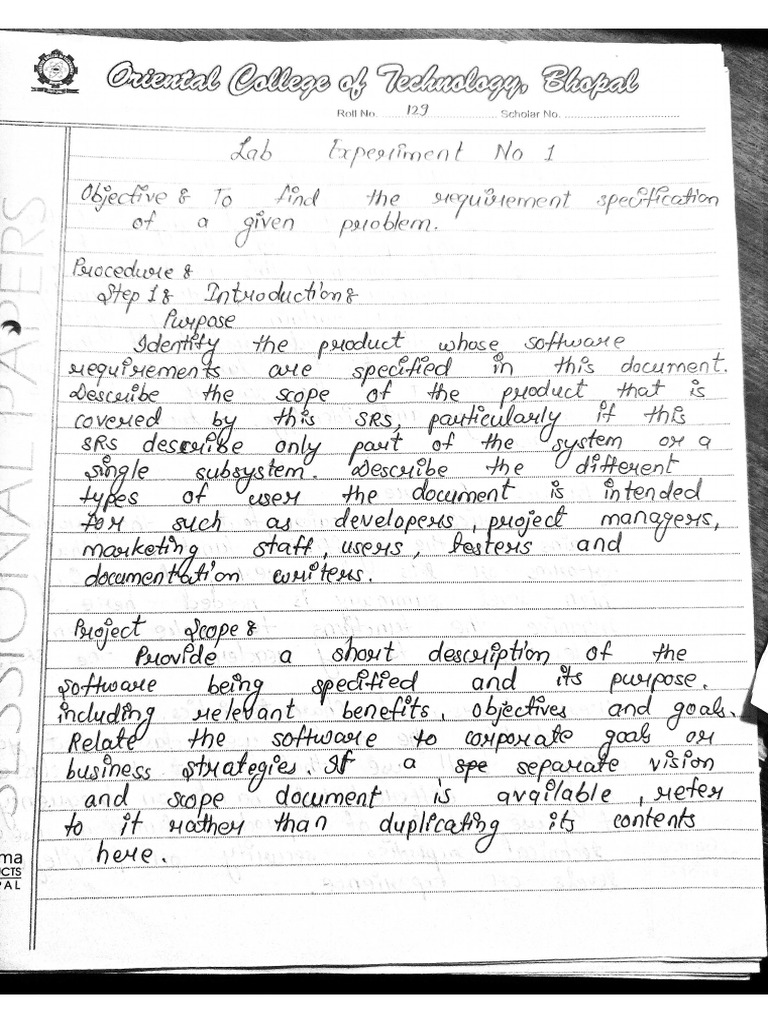 Oriental College of Technology, Bhopal
Roll No. 129 Scholar No.
Lab Experiment No 1
Objective : To find the requirement specification
of a given problem.
Procedure :
Step 1: Introduction:
Purpose
Identify the product whose software
requirements are specified in this document.
Describe the scope of the product that is
covered by this SRS, particularly if this
SRS describe only part of the system or a
single subsystem. Describe the different
types of user the document is intended
for such as developers, project managers,
marketing staff, users, testers and
documentation writers.
Project Scope :
Provide a short description of the
software being specified and its purpose.
including relevant benefits, objectives and goals.
Relate the software to corporate goals or
business strategies. If a spe separate vision
and scope document is available, refer
to it rather than duplicating its contents
here.
ESSIONAL PAPERS
ma
CTS
PAL